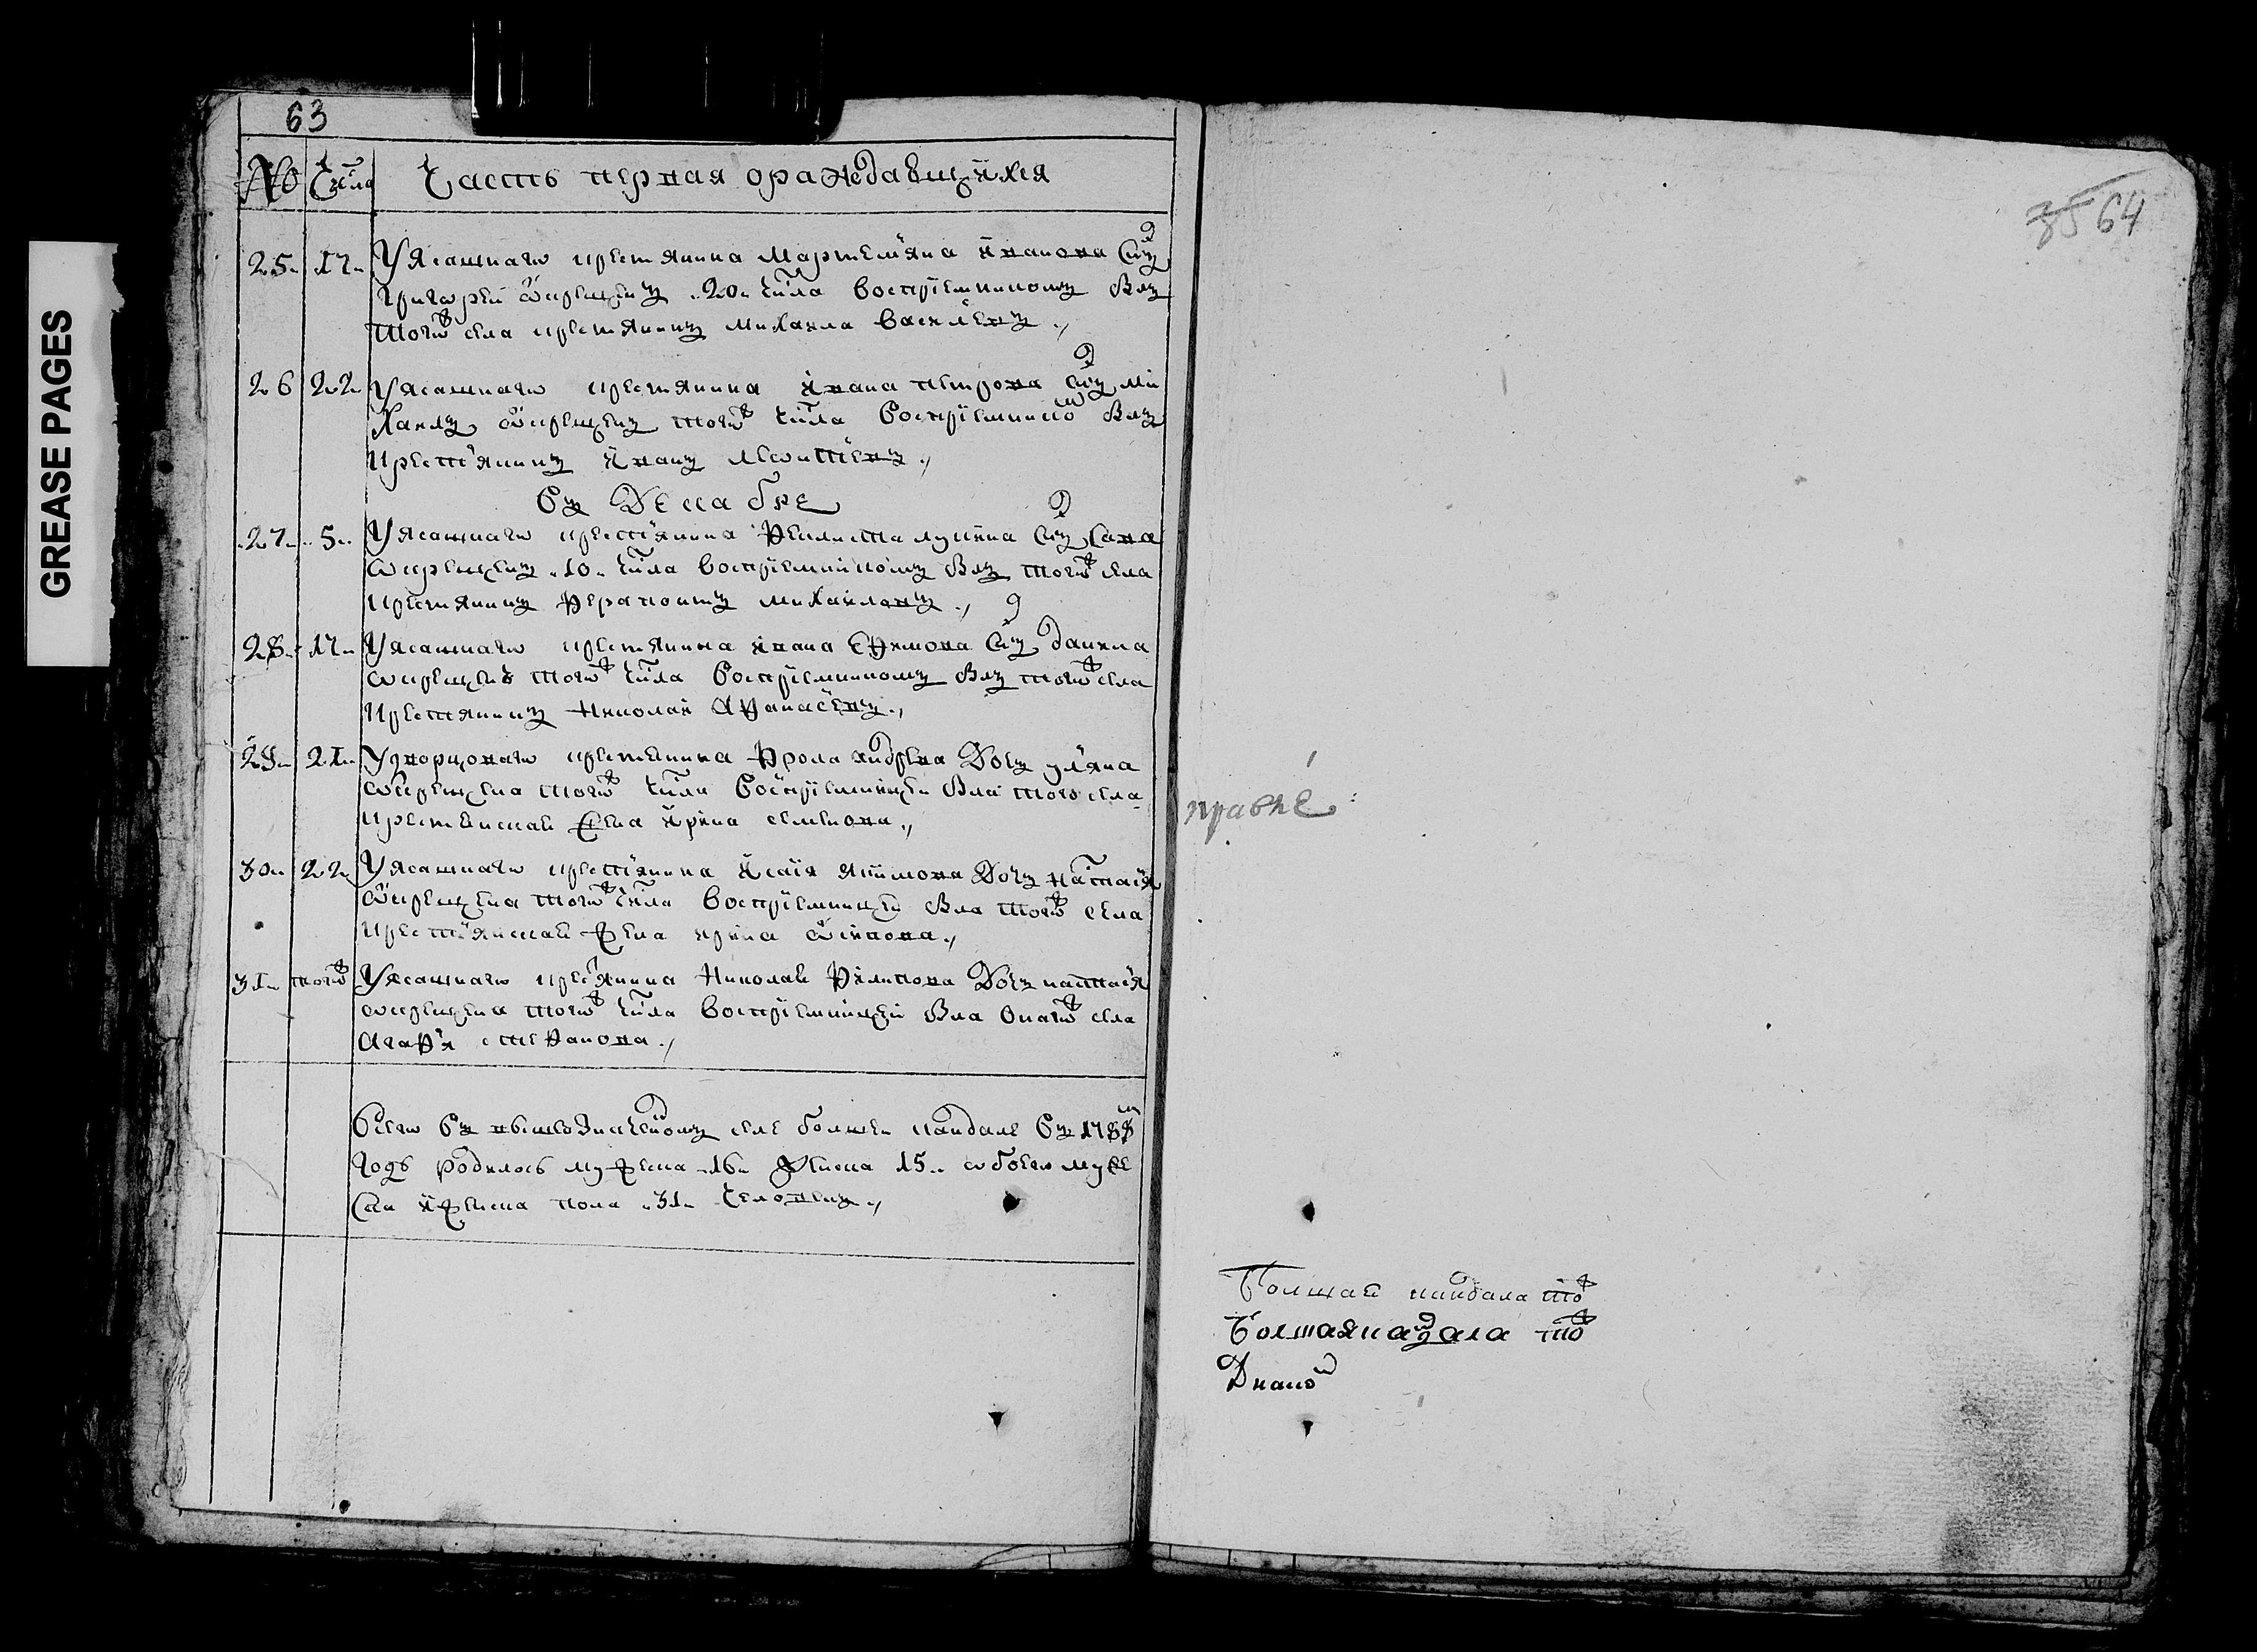 GREASE PAGES
63
№ Числа Часть первая ораждавшихся
25 17 Уясашнаго крестянина Мартемяна Иванова Сынъ
Григорей окрещенъ 20 числа восприемникомъ былъ
того села крестянинъ Михаила Василевъ
26 22 Уясашнаго крестянина Ивана петрова сынъ Ми
хаилъ окрещенъ того числа восприемникомъ былъ
крестянинъ Иванъ Леонтевъ
въ Декабре
27 5 Уясашнаго крестянина сынъ Сава
окрещенъ 10 числа восприемникомъ былъ того села
крестянинъ Ферапонтъ Михайловъ
28 17 Уясашнаго крестянина Ивана Ефимова сынъ данила
окрещенъ того числа восприемникомъ былъ того села
крестянинъ Николай Афанасевъ
29 21 Удворцоваго крестянина Фрола андреева Дочь уляна
окрещена того числа восприемницей была того села
крестянская жена Ирина семенова
30 22 Уясашнаго крестянина Исаия Дочь настасия
окрещена того числа восприемницей была того села
крестянская жена ирина осипова
31 того Уясашнаго крестянина Николая Филипова Дочь настасия
окрещена того числа восприемницей была онаго села
Агафия степанова
Всего въ вышеозначенномъ селе болшей кандале въ 1788м
годъ родилось мужеска 16 женска 15 обоего муже
ска и женска пола 31 человекъ
35 64
правне
Болшай кандала то
Болшаякандала то